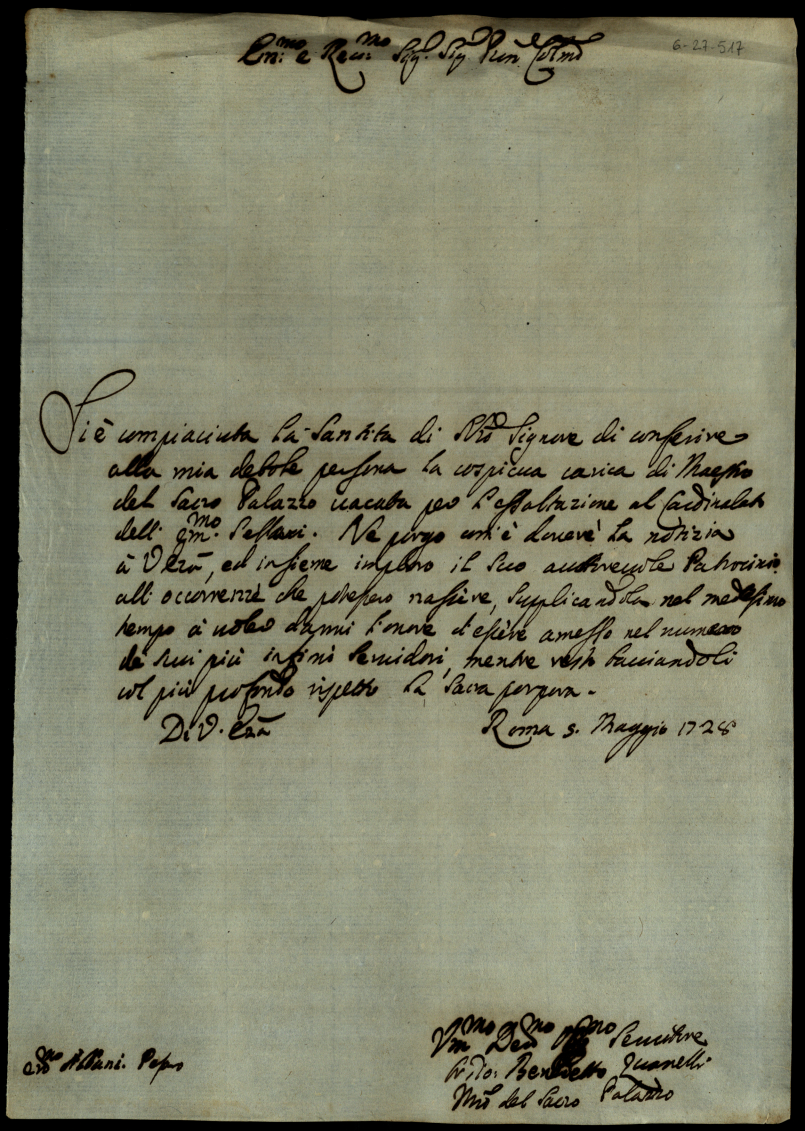 Em:mo e Reu:mo Sig.r Sig.r Pron.e Colmo
6-27-517
Si è compiaciuta la Santità di Nro Signore di conferire
alla mia debole persona la cospicua carica di Maestro
del Sacro Palazzo vacata per l'essaltazione al Cardinalato
dell' Em:mo Sellari. Ne porgo com'è dovere la notizia
à V Eza, ed insieme imploro il suo autorevole Patrocinio
all' occorrenze che potessero nascere, supplicandola nel medesimo
tempo à voler darmi l'onore d'essere amesso nel numero
de suoi più infimi servidori, mentre resto bacciandoli
col più profondo rispetto la sacra porpora.
Di V. Eza Roma 5. Maggio 1728
Vmo Devmo Servitore
Benedetto
Mro del Sacro Palazzo
Albani